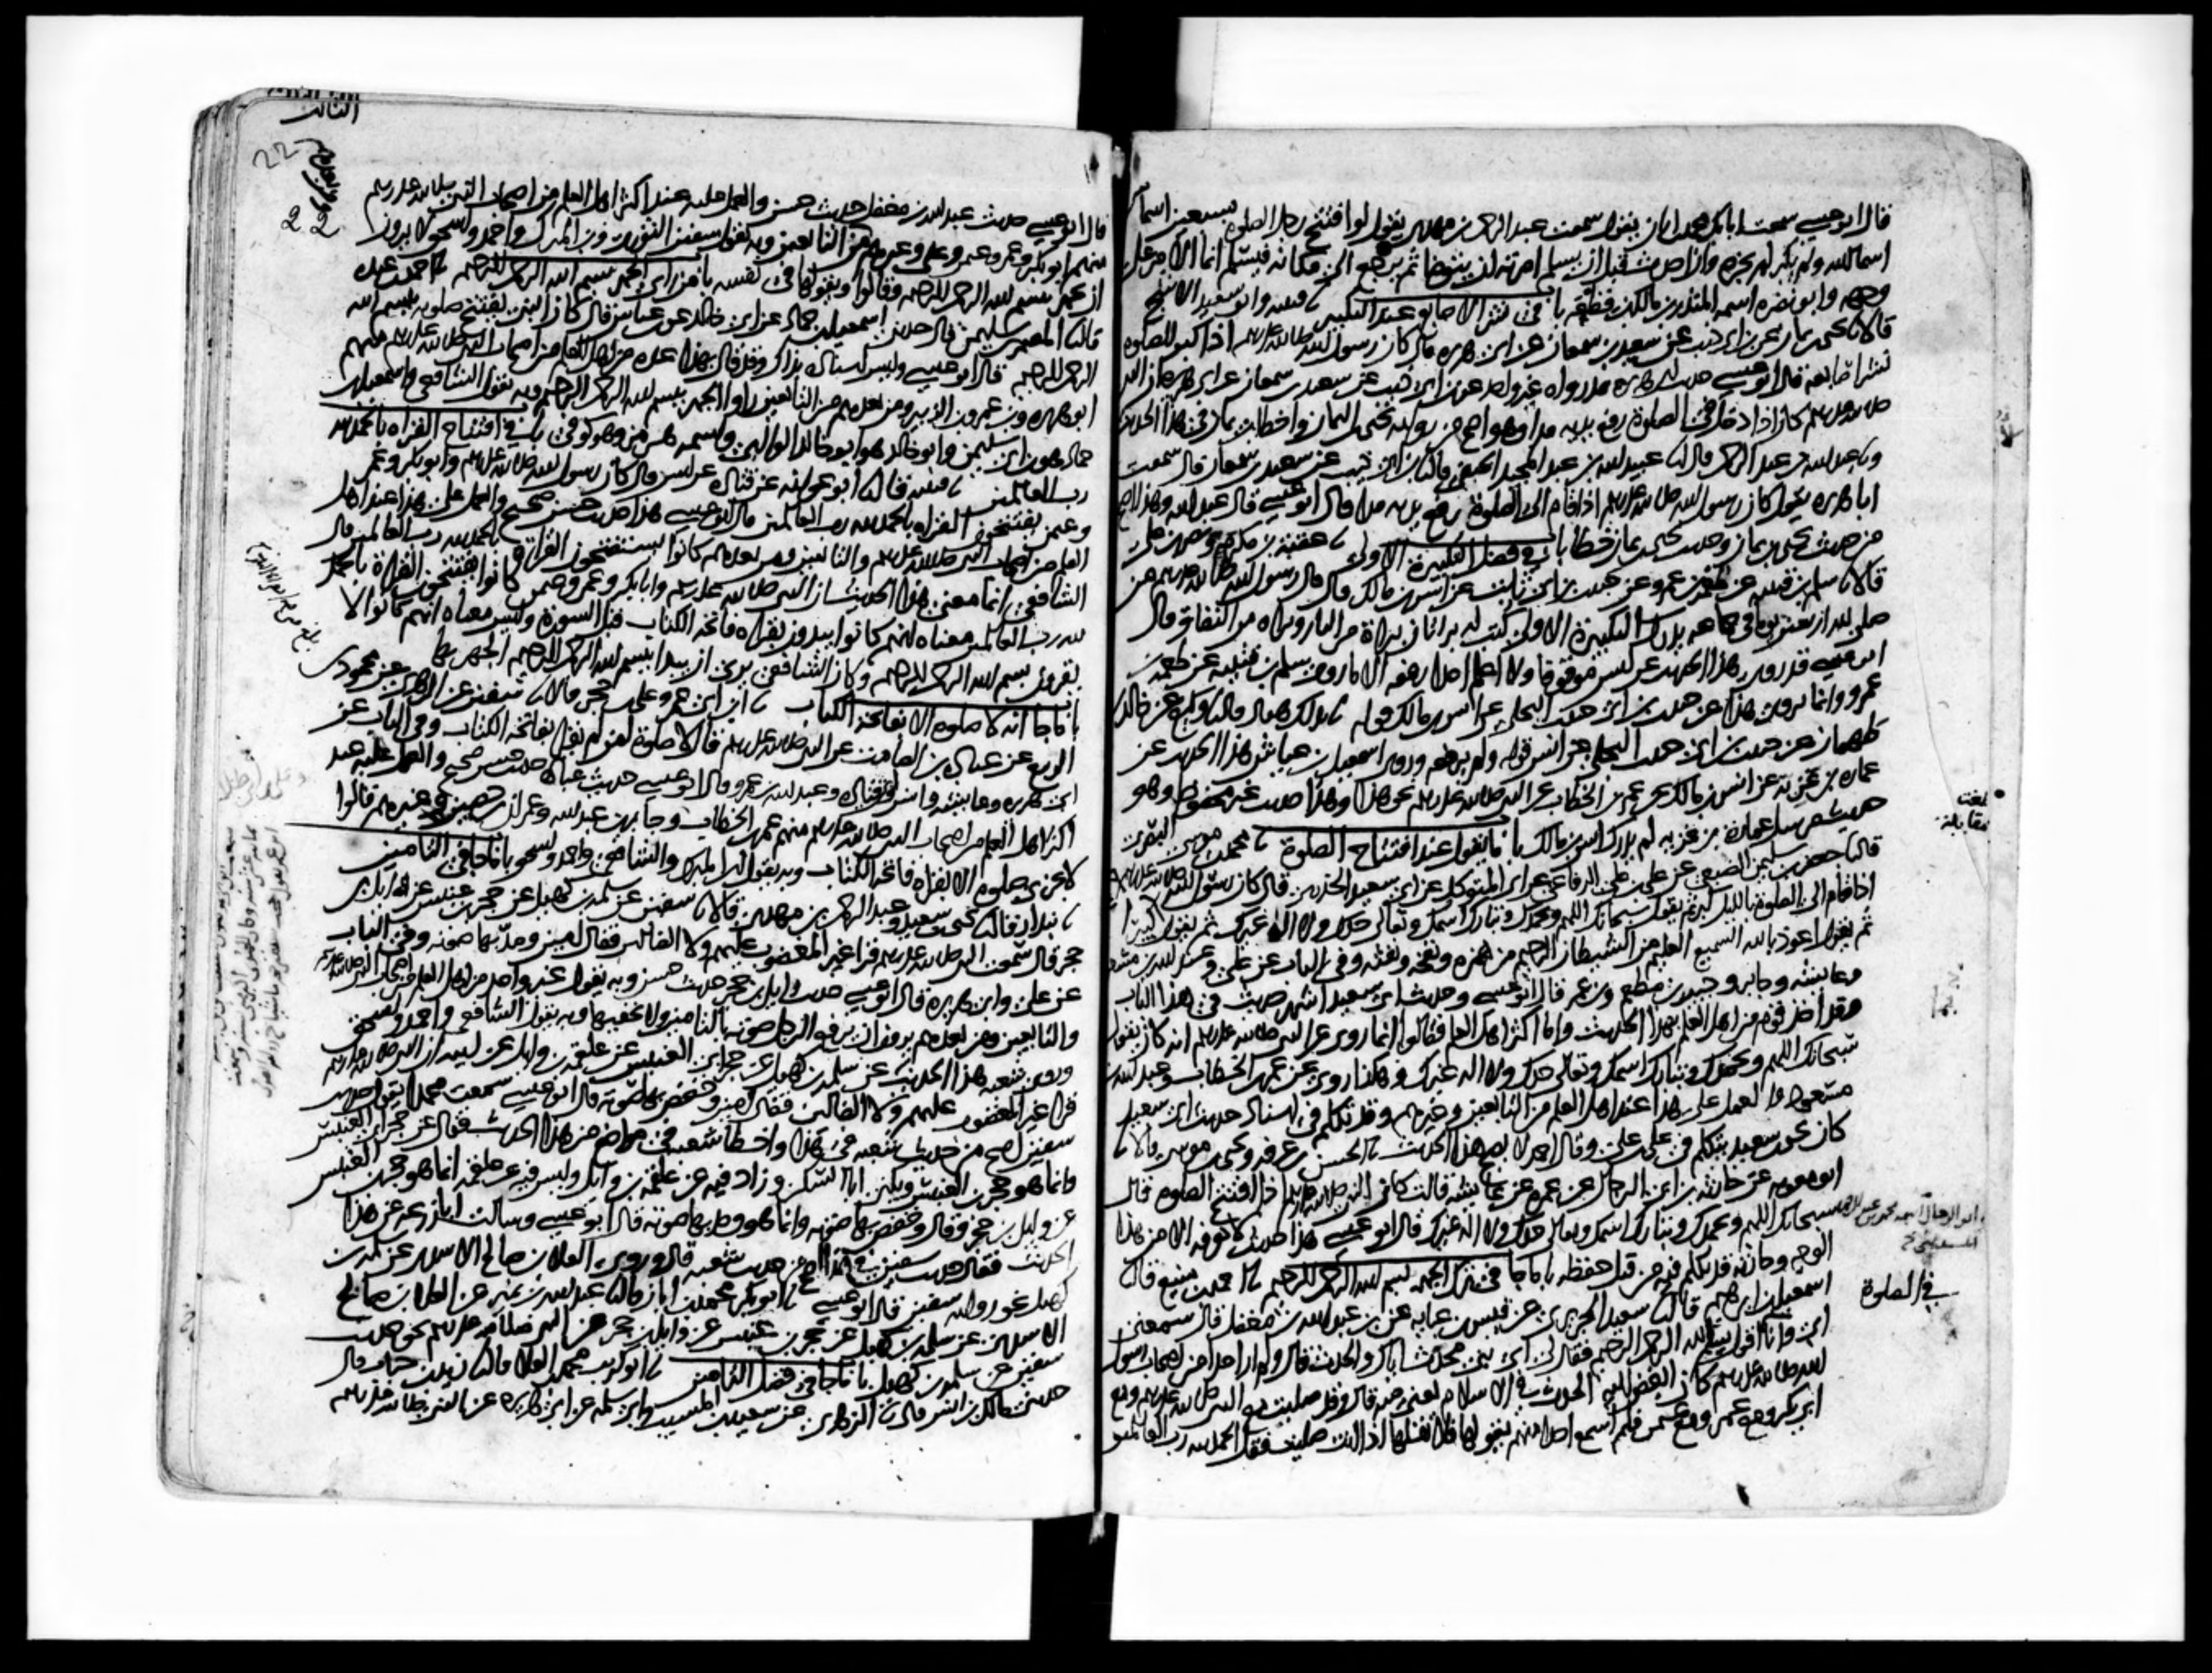 قال ابو عيسى سمعت ابا بكر محمد بن ابان يقول سمعت عبد الرحمن بن مهدي يقول لو افتتح رجل الصلوة بسبعين اسما من
اسماء الله ولم يكبر لم يجزه وان احدث قبل ان يسلم امرته ان يتوضا ثم يرجع الى مكانه فيسلم انما الامر على
وجهه وابو نضره اسمه المنذر بن مالك بن قطعه باب في نشر الاصابع عند التكبير نا قتيبه وابو سعيد الاشج
قالا نا يحيى بن يمان عن ابن ابي ذئب عن سعيد بن سمعان عن ابي هريره قال كان رسول الله صلى الله عليه وسلم اذا كبر للصلوة
نشر اصابعه قال ابو عيسى حديث ابي هريره قد رواه غير واحد عن ابن ابي ذئب عن سعيد بن سمعان عن ابي هريره ان النبي
صلى الله عليه وسلم كان اذا دخل في الصلوة رفع يديه مدا وهو اصح من رواية يحيى بن اليمان واخطا ابن يمان في هذا الحديث
ونا عبد الله بن عبد الرحمن قال نا عبيد الله بن عبد المجيد الحنفي قال نا ابن ابي ذئب عن سعيد بن سمعان قال سمعت
ابا هريره يقول كان رسول الله صلى الله عليه وسلم اذا قام الى الصلوة رفع يديه مدا قال ابو عيسى قال عبد الله وهذا اصح
من حديث يحيى بن يمان وحديث يحيى بن يمان خطا باب في فضل التكبيرة الاولى نا عقبة بن مكرم ونصر بن علي
قالا نا سلم بن قتيبه عن طعمة بن عمرو عن حبيب بن ابي ثابت عن انس بن مالك قال قال رسول الله صلى الله عليه وسلم من
صلى لله اربعين يوما في جماعه يدرك التكبيرة الاولى كتب له براءتان براة من النار وبراه من النفاق قال
ابو عيسى قد روي هذا الحديث عن انس موقوفا ولا اعلم احدا رفعه الا ما روى سلم بن قتيبه عن طعمة بن
عمرو وانما يروى هذا عن حبيب بن ابي حبيب البجلي عن انس بن مالك قوله نا بذلك هناد قال نا وكيع عن خالد بن
طهمان عن حبيب بن ابي حبيب البجلي عن انس قوله ولم يرفعه وروى اسمعيل بن عياش هذا الحديث عن
عماره بن غزيه عن انس بن مالك عن عمر بن الخطاب عن النبي صلى الله عليه وسلم نحو هذا وهذا حديث غير محفوظ وهو
حديث مرسل عمارة بن غزيه لم يدرك انس بن مالك باب ما يقول عند افتتاح الصلوة نا محمد بن موسى البصري
قال نا جعفر بن سليمن الضبعي عن علي بن علي الرفاعي عن ابي المتوكل عن ابي سعيد الخدري قال كان رسول الله صلى الله عليه وسلم
اذا قام الى الصلوة بالليل كبر ثم يقول سبحانك اللهم وبحمدك وتبارك اسمك وتعالى جدك ولا اله غيرك ثم يقول الله اكبر كبيرا
ثم يقول اعوذ بالله السميع العليم من الشيطان الرجيم من همزه ونفخه ونفثه وفي الباب عن علي وعبد الله بن مسعود
وعائشه وجابر وجبير بن مطعم وبن عمر قال ابو عيسى وحديث ابي سعيد اشهر حديث في هذا الباب
وقد اخذ قوم من اهل العلم بهذا الحديث واما اكثر اهل العلم فقالوا انما روي عن النبي صلى الله عليه وسلم انه كان يقول
سبحانك اللهم وبحمدك وتبارك اسمك وتعالى جدك ولا اله غيرك وهكذا روي عن عمر بن الخطاب وعبد الله بن
مسعود والعمل على هذا عند اهل العلم من التابعين وغيرهم وقد تكلم في اسناد حديث ابي سعيد
كان يحيى بن سعيد يتكلم في علي بن علي وقال احمد لا يصح هذا الحديث نا الحسن بن عرفه ويحيى بن موسى قالا نا
ابو معويه عن حارثه بن ابي الرجال عن عمره عن عائشه قالت كان النبي صلى الله عليه وسلم اذا افتتح الصلوة قال
سبحانك اللهم وبحمدك وتبارك اسمك وتعالى جدك ولا اله غيرك قال ابو عيسى هذا حديث لا نعرفه الا من هذا
الوجه وحارثه قد تكلم فيه من قبل حفظه باب ما جا في ترك الجهر بسم الله الرحمن الرحيم نا احمد بن منيع قال نا
اسمعيل بن ابرهيم قال نا سعيد الجريري عن قيس بن عبايه عن بن عبد الله بن مغفل قال سمعني
ابي وانا اقول بسم الله الرحمن الرحيم فقال لي اي بني محدث اياك والحدث قال ولم ار احدا من اصحاب رسول
الله صلى الله عليه وسلم كان ابغض اليه الحدث في الاسلام يعني منه قال وقد صليت مع النبي صلى الله عليه وسلم ومع
ابي بكر ومع عمر ومع عثمن فلم اسمع احدا منهم يقولها فلا تقلها اذا انت صليت فقل الحمد لله رب العالمين
بلغت
مقابلة
في الصلوة
الثالث
22
22
قال ابو عيسى حديث عبد الله بن مغفل حديث حسن والعمل عليه عند اكثر اهل العلم من اصحاب النبي صلى الله عليه وسلم
منهم ابو بكر وعمر وعثمن وعلي وغيرهم ومن التابعين وبه يقول سفين الثوري وبن المبرك واحمد واسحق لا يرون
ان يجهر ببسم الله الرحمن الرحيم وقالوا ويقولها في نفسه باب من راى الجهر بسم الله الرحمن الرحيم نا احمد بن عبده
قال نا المعتمر بن سليمن قال حدثني اسمعيل بن حماد عن ابي خالد عن بن عباس قال كان النبي يفتتح صلوته ببسم الله
الرحمن الرحيم قال ابو عيسى وليس اسناده بذاك وقد قال بهذا عده من اهل العلم من اصحاب النبي صلى الله عليه وسلم منهم
ابو هريره وبن عمر وبن الزبير ومن بعدهم من التابعين راوا الجهر ببسم الله الرحمن الرحيم وبه يقول الشافعي واسمعيل بن
حماد هو ابن ابي سليمن وابو خالد هو ابو خالد الوالبي واسمه هرمز وهو كوفي باب في افتتاح القراه بالحمد لله
رب العالمين نا قتيبه قال نا ابو عوانه عن قتاده عن انس قال كان رسول الله صلى الله عليه وسلم وابو بكر وعمر
وعثمن يفتتحون القراه بالحمد لله رب العالمين قال ابو عيسى هذا حديث حسن صحيح والعمل على هذا عند اهل
العلم من اصحاب النبي صلى الله عليه وسلم والتابعين ومن بعدهم كانوا يستفتحون القراة بالحمد لله رب العالمين قال
الشافعي انما معنى هذا الحديث ان النبي صلى الله عليه وسلم وابا بكر وعمر وعثمن كانوا يفتتحون القراة بالحمد
لله رب العالمين معناه انهم كانوا يبدون بقراه فاتحة الكتاب قبل السورة وليس معناه انهم كانوا لا
يقرون بسم الله الرحمن الرحيم وكان الشافعي يرى ان يبدا ببسم الله الرحمن الرحيم الجهر بها
باب ما جا انه لا صلوة الا بفاتحة الكتاب نا ابن ابي عمر وعلي بن حجر قالا نا سفين عن الزهري عن محمود بن
الربيع عن عباده بن الصامت عن النبي صلى الله عليه وسلم قال لا صلوة لمن لم يقرا بفاتحة الكتاب وفي الباب عن
ابي هريره وعايشه وانس وابي قتاده وعبد الله بن عمرو قال ابو عيسى حديث عباده حديث حسن صحيح والعمل عليه عند
اكثر اهل العلم من اصحاب النبي صلى الله عليه وسلم منهم عمر بن الخطاب وجابر بن عبد الله وعمران بن حصين وغيرهم قالوا
لا تجزي صلوة الا بقراه فاتحة الكتاب وبه يقول ابن المبرك والشافعي واحمد واسحق باب ما جا في التامين
نا بندار قال نا يحيى بن سعيد وعبد الرحمن بن مهدي قالا نا سفين عن سلمه بن كهيل عن حجر بن عنبس عن وائل بن
حجر قال سمعت النبي صلى الله عليه وسلم قرا غير المغضوب عليهم ولا الضالين فقال امين ومد بها صوته وفي الباب
عن علي وابي هريره قال ابو عيسى حديث وايل بن حجر حديث حسن وبه يقول غير واحد من اهل العلم من اصحاب النبي صلى الله عليه وسلم
والتابعين ومن بعدهم يرون ان يرفع الرجل صوته بالتامين ولا يخفيها وبه يقول الشافعي واحمد واسحق
وروى شعبه هذا الحديث عن سلمه بن كهيل عن حجر ابي العنبس عن علقمه بن وايل عن ابيه ان النبي صلى الله عليه وسلم
قرا غير المغضوب عليهم ولا الضالين فقال امين وخفض بها صوته قال ابو عيسى سمعت محمدا يقول حديث
سفين اصح من حديث شعبه في هذا واخطا شعبه في مواضع من هذا الحديث فقال عن حجر ابي العنبس
وانما هو حجر بن العنبس ويكنى ابا السكن وزاد فيه عن علقمه بن وايل وليس فيه عن علقمه انما هو حجر بن العنبس
عن وايل بن حجر وقال وخفض بها صوته وانما هو ومد بها صوته قال ابو عيسى وسالت ابا زرعه عن هذا
الحديث فقال حديث سفين في هذا اصح من حديث شعبه قال وروى العلا بن صالح الاسدي عن سلمه بن
كهيل نحو روايه سفين قال ابو عيسى نا ابو بكر محمد بن ابان قال نا عبد الله بن نمير عن العلا بن صالح
الاسدي عن سلمه بن كهيل عن حجر بن عنبس عن وايل بن حجر عن النبي صلى الله عليه وسلم نحو حديث
سفين عن سلمه بن كهيل باب ما جا في فضل التامين نا ابو كريب محمد بن العلا قال نا زيد بن حباب قال
حدثني مالك بن انس قال نا الزهري عن سعيد بن المسيب وابي سلمه عن ابي هريره عن النبي صلى الله عليه وسلم